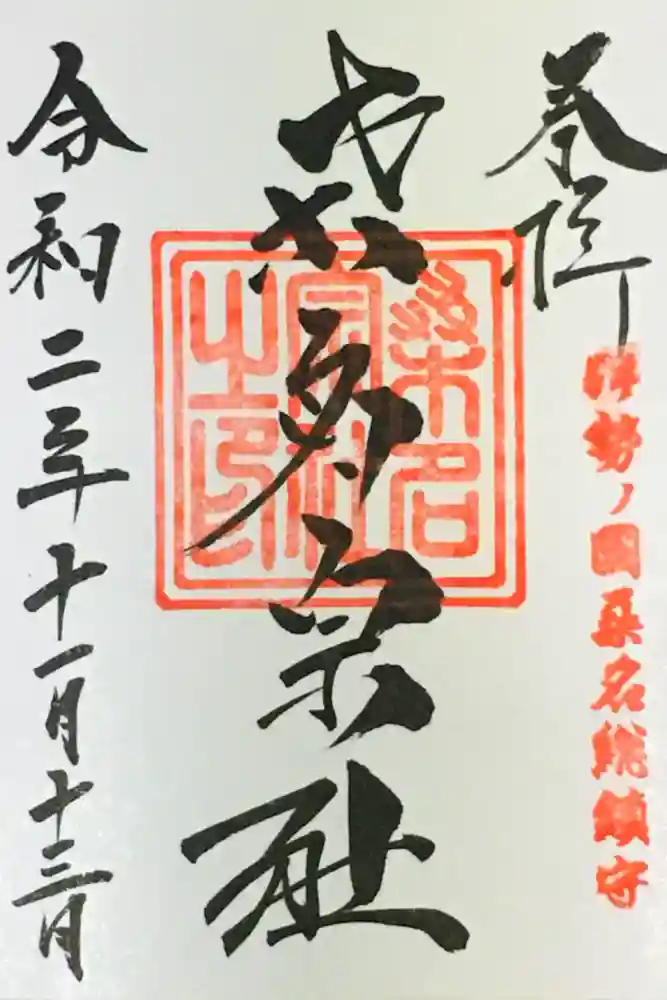 奉拝
伊勢ノ國桑名総鎮守
桑名宗社
桑名
宗社
之印
令和二年十一月十三日